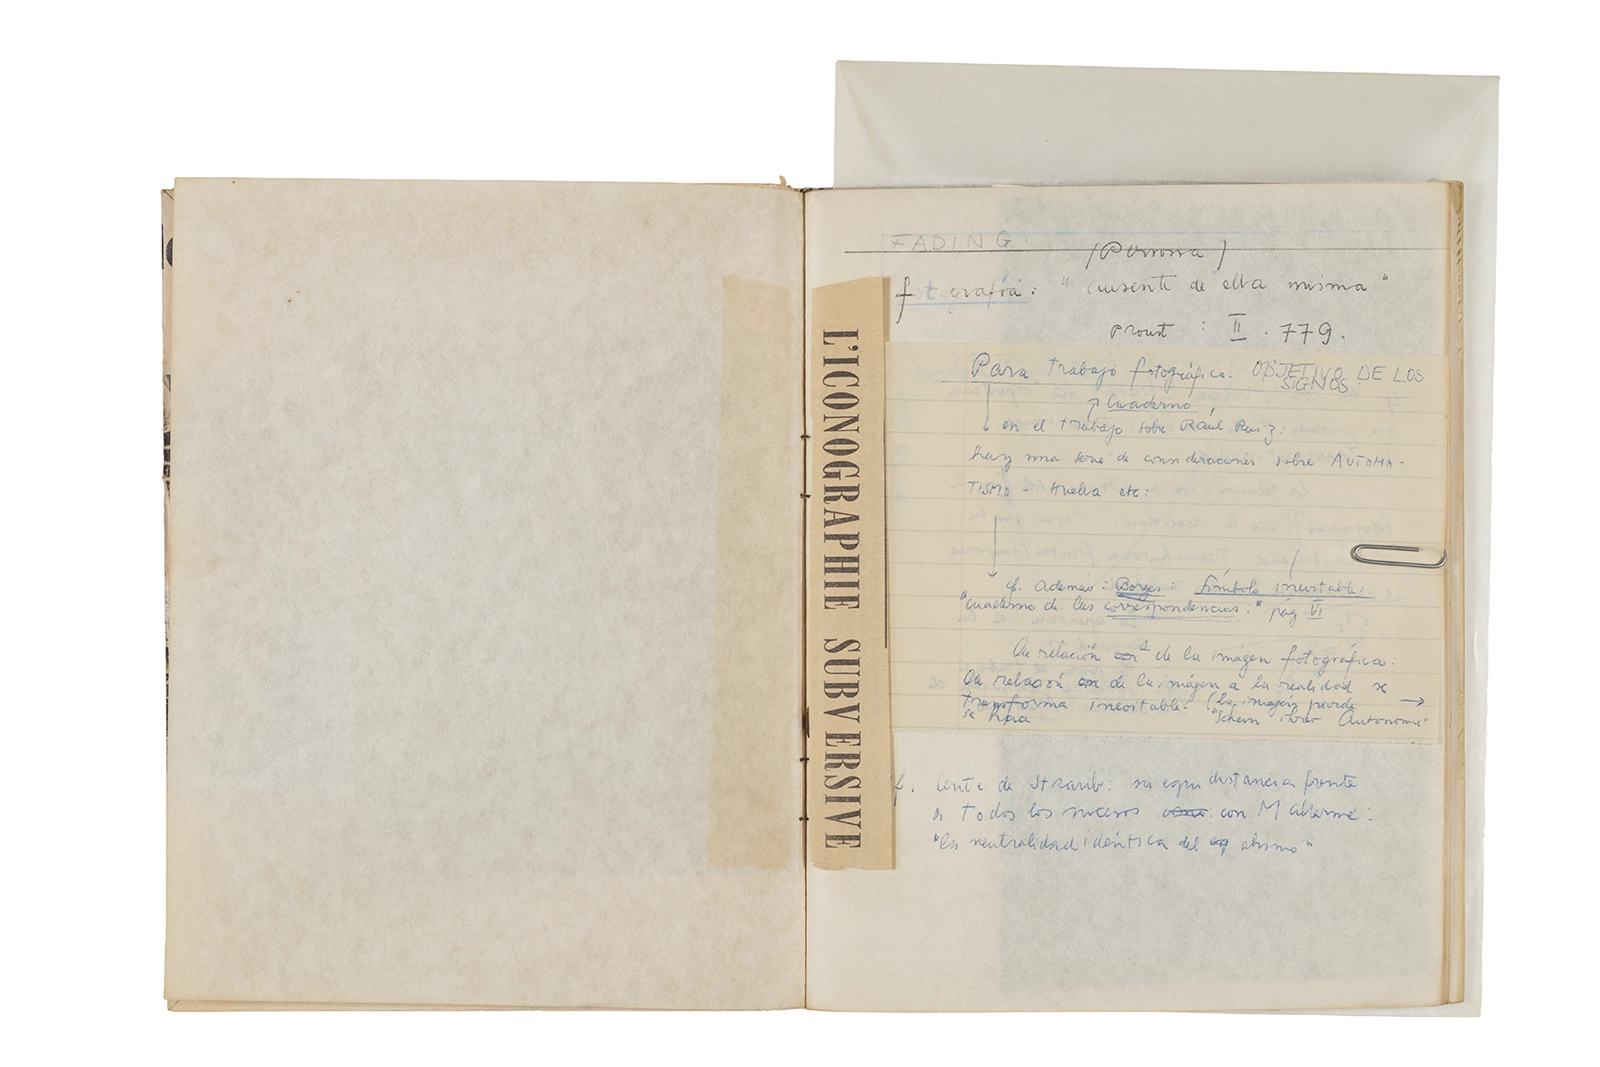 L'ICONOGRAPHIE SUBVERSIVE
FADING:
(Persona)
fotografía: "ausente de ella misma"
Proust : II . 779.
Para trabajo fotográfico: OBJETIVO DE LOS
SIGNOS
Cuaderno
en el trabajo sobre Raúl Ruiz:
hay una serie de consideraciones sobre AUTOMA-
TISMO - Huella etc:
cf. además: Borges: Símbolo inevitable:
"cuaderno de las correspondencias:" pag VI
La relación de la imagen fotográfica:
La relación de la imagen a la realidad se
transforma inevitable: (la imagen pierde →
se hace Autonome
cf. lente de Straub: su equidistancia frente
a Todos los sucesos con Mallarmé:
"la neutralidad idéntica del abismo"